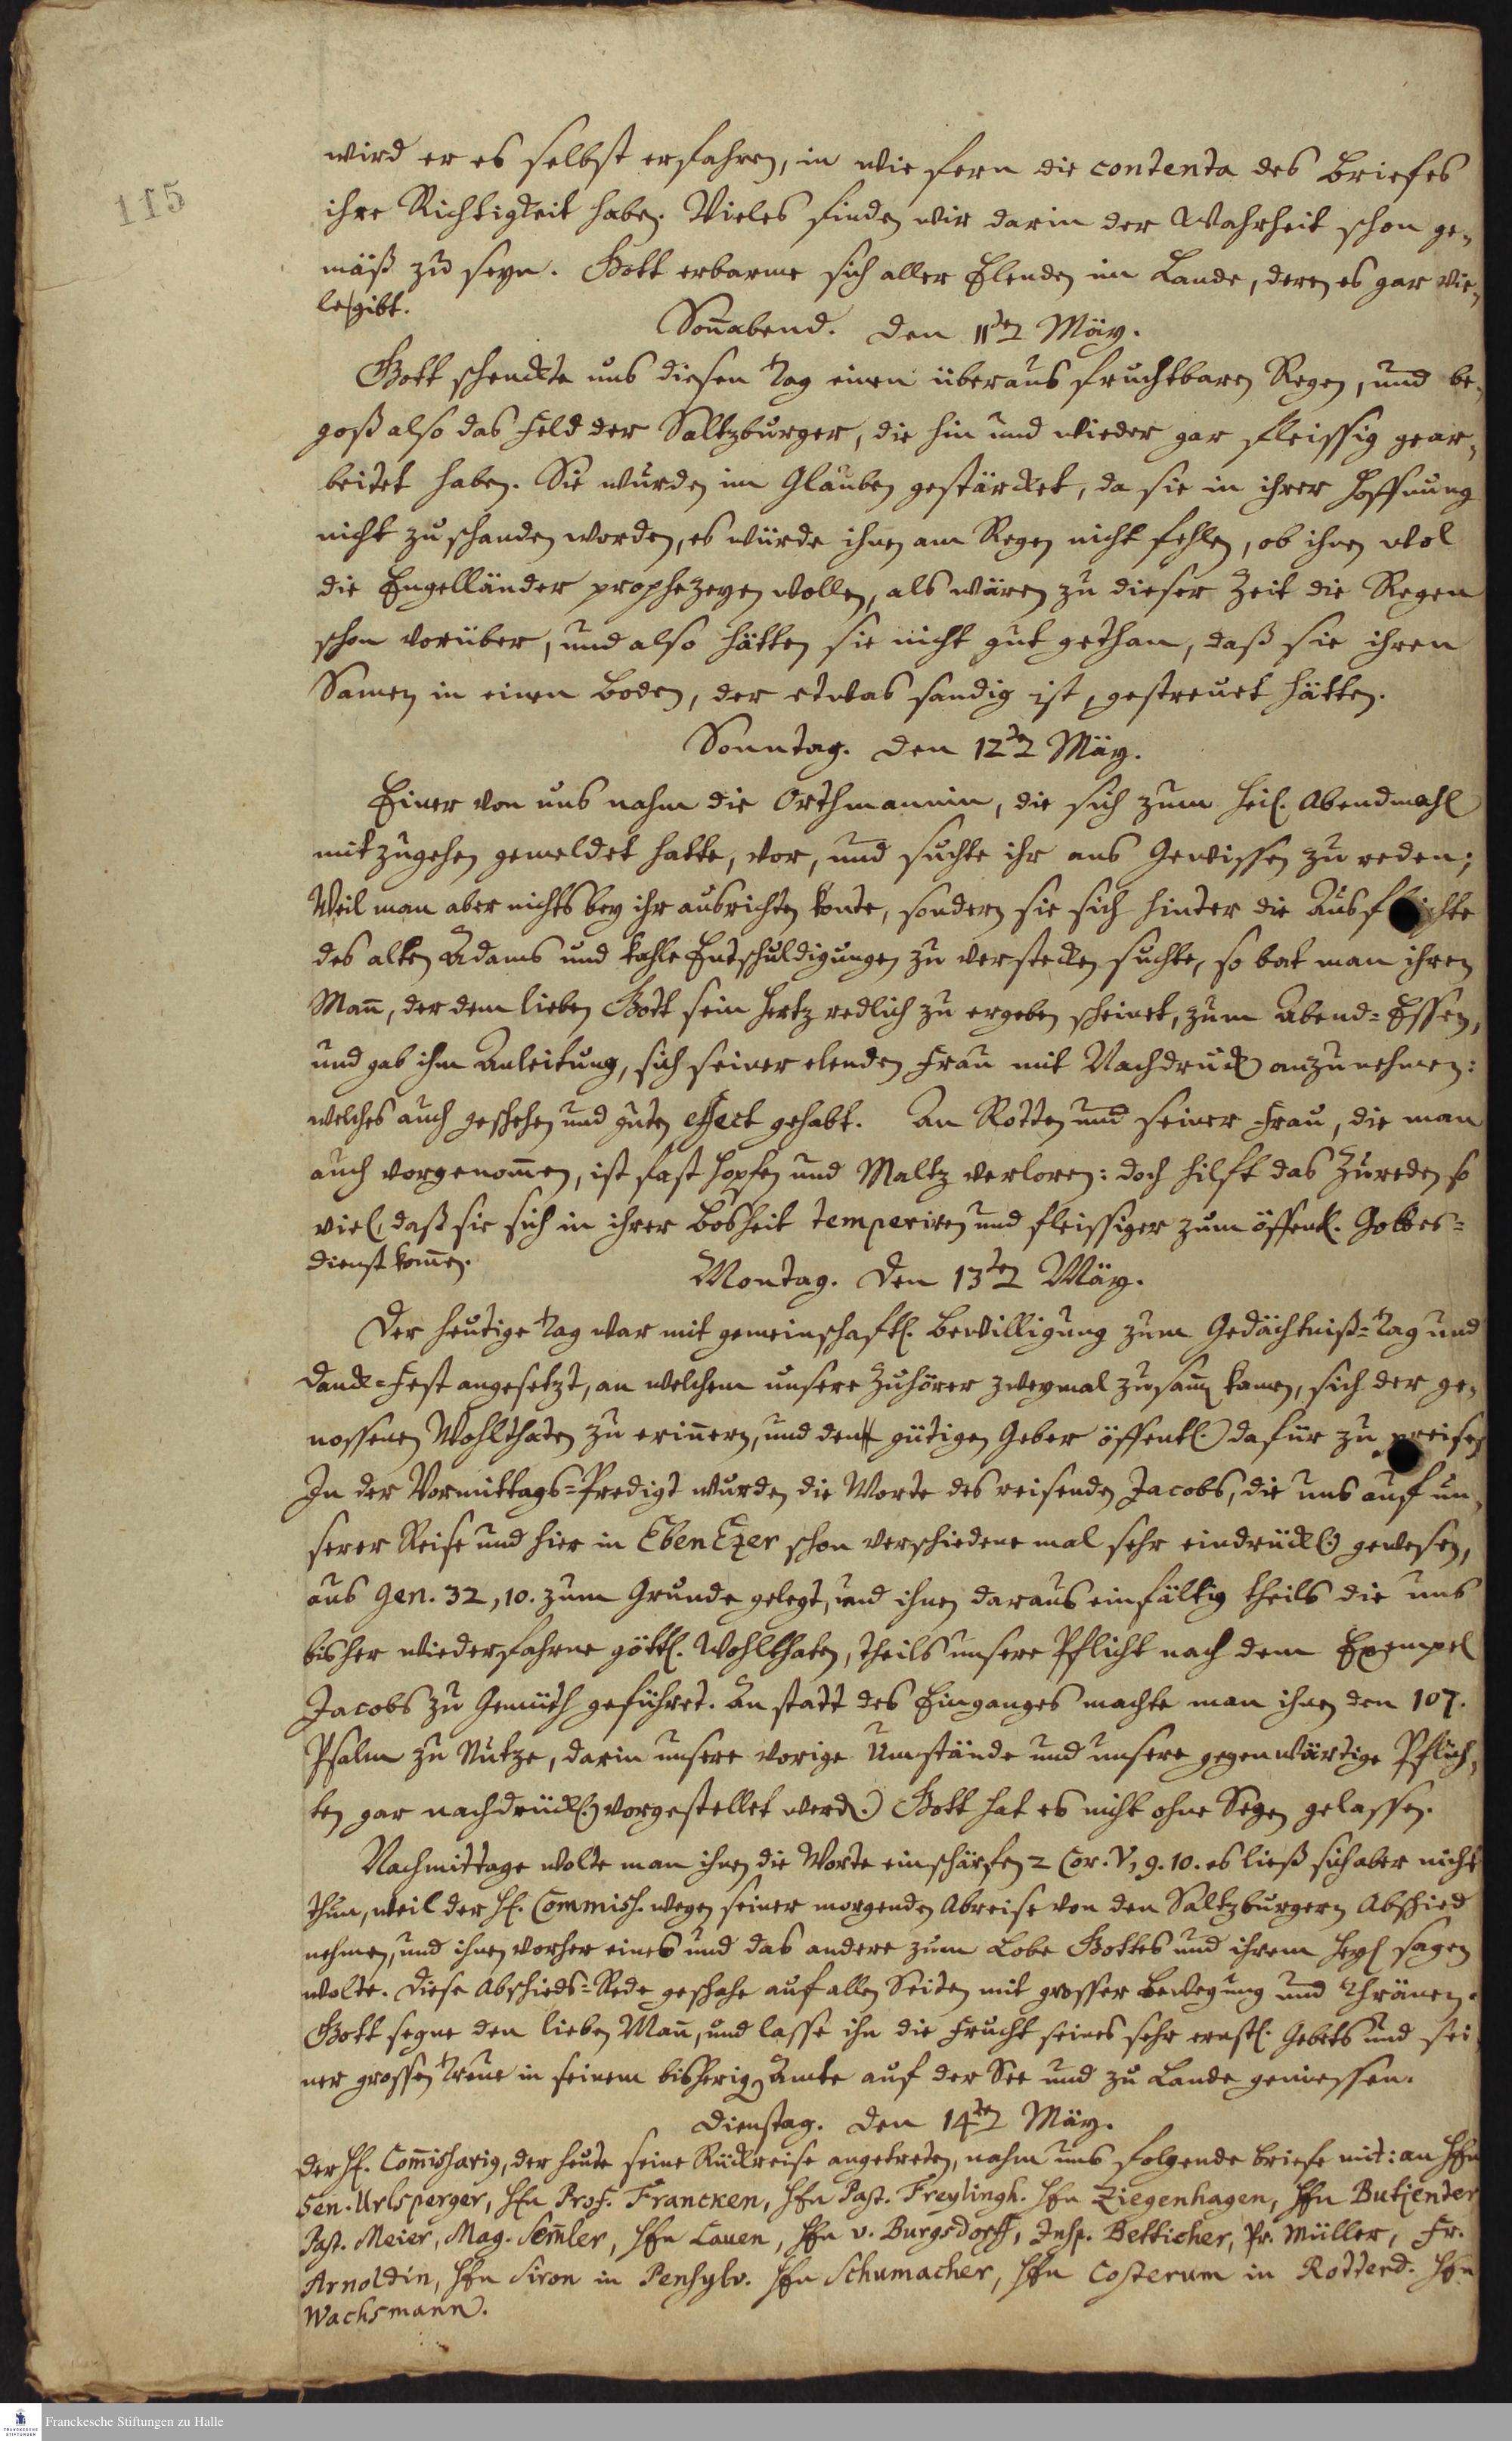 115
wird er es selbst erfahren, in wie fern die contenta des Briefes
ihre Richtigkeit haben. Vieles finden wir darin der Wahrheit schon ge-
mäß zu seyn. Gott erbarme sich aller Elenden im Lande, deren es gar vie-
le gibt.
Soñabend. den 11ten Mäy.
Gott schenckte uns diesen Tag einen überaus fruchtbaren Regen, und be-
goß also das Feld der Saltzburger, die hin und wieder gar fleissig gear-
beitet haben. Sie wurden im Glauben gestärcket, da sie in ihrer Hoffnung
nicht zu schanden worden, es würde ihnen am Regen nicht fehlen, ob ihnen wol
die Engelländer prophezeyen wollen, als wären zu dieser Zeit die Regen
schon vorüber, und also hätten sie nicht gut gethan, daß sie ihren
Samen in einen Boden, der etwas sandig ist, gestreuet hätten.
Sonntag. den 12ten Mäy.
Einer von uns nahm die Orthmannin, die sich zum Heil. Abendmahl
mitzugehen gemeldet hatte, vor, und suchte ihr ans Gewissen zu reden;
Weil man aber nichts bey ihr ausrichten konte, sondern sie sich hinter die Ausflüchte
des alten Adams und kahle Entschuldigungen zu verstecken suchte, so bat man ihren
Mañ, der dem lieben Gott sein Hertz redlich zu ergeben scheinet, zum Abend-Essen,
und gab ihm Anleitung, sich seiner elenden Frau mit Nachdruck anzunehmen:
welches auch geschehen und guten effect gehabt. An Rotten und seiner Frau, die man
auch vorgenom̃en, ist fast Hopfen und Maltz verloren: doch hilft das Zureden so
viel, daß sie sich in ihrer Bosheit temperiren und fleissiger zum öffentl. Gottes-
dienst kom̃en.
Montag. den 13ten Mäy.
Der heutige Tag war mit gemeinschaftl. Bewilligung zum Gedächtniß-Tag und
Danck-Fest angesetzt, an welchem unsere Zuhörer zweymal zusam̃en kamen, sich der ge-
nossenen Wohlthaten zu eriñern, und den gütigen Geber öffentl. dafür zu preisen
In der Vormittags-Predigt wurden die Worte des reisenden Jacobs, die uns auf un-
serer Reise und hier in EbenEzer schon verschiedene mal sehr eindrückl. gewesen,
aus Gen. 32, 10. zum Grunde gelegt, und ihnen daraus einfältig theils die uns
bisher wiederfahrne göttl. Wohlthaten, theils unsere Pflicht nach dem Exempel
Jacobs zu Gemüth geführet. An statt des Einganges machte man ihnen den 107.
Psalm zu Nutze, darin unsere vorige Umstände und unsere gegenwärtige Pflich-
ten gar nachdrückl. vorgestellet werd. Gott hat es nicht ohne Segen gelassen.
Nachmittage wolte man ihnen die Worte einschärfen 2 Cor. V, 9. 10. es ließ sich aber nicht
thun, weil der H. Commiss. wegen seiner morgenden Abreise von den Saltzburgern Abschied
nehmen, und ihnen vorher eines und das andere zum Lobe Gottes und ihrem Heyl sagen
wolte. Diese Abschieds-Rede geschahe auf allen Seiten mit grosser Bewegung und Thränen.
Gott segne den lieben Mañ, und lasse ihn die Frucht seines sehr ernstl. Gebets und sei-
ner grossen Treue in seinem bisherigen Amte auf der See und zu Lande geniessen.
Dienstag. den 14ten Mäy.
Der H. Com̃issarius, der heute seine Rückreise angetreten, nahm uns folgende Briefe mit: an Hfn
Sen. Urlsperger, Hfn Prof. Francken, Hfn Past. Freylingh. Hfn Ziegenhagen, Hfn Butjenter
Past. Meier, Mag. Sem̃ler, Hfn Lauen, Hfn v. Burgsdorff, Insp. Betticher, Pr. Müller, Fr.
Arnoldin, Hfn Siron in Pensylv. Hfn Schumacher, Hfn Costerum in Rotterd. Hfn
Wachsmann.
Franckesche Stiftungen zu Halle